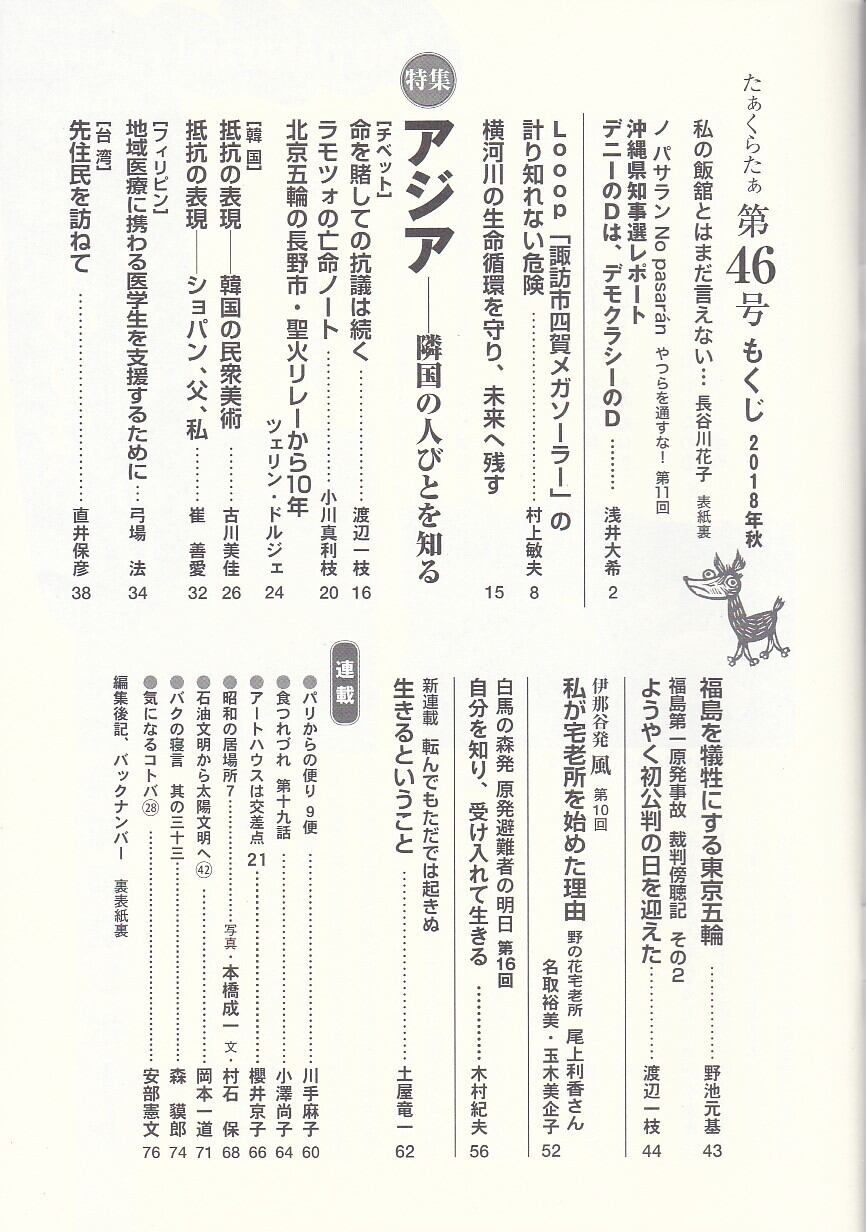 たぁくらたぁ 第46号 もくじ 2018年秋
私の飯舘とはまだ言えない… 長谷川花子 表紙裏
ノ パサラン No pasarán やつらを通すな! 第11回
沖縄県知事選レポート
デニーのDは、デモクラシーのD ……… 浅井大希 2
Looop「諏訪市四賀メガソーラー」の
計り知れない危険 ……… 村上敏夫 8
横河川の生命循環を守り、未来へ残す 15
特集
アジア――隣国の人びとを知る
[チベット]
命を賭しての抗議は続く ……… 渡辺一枝 16
ラモツォの亡命ノート ……… 小川真利枝 20
北京五輪の長野市・聖火リレーから10年
ツェリン・ドルジェ 24
[韓国]
抵抗の表現――韓国の民衆美術 ……… 古川美佳 26
抵抗の表現――ショパン、父、私 ……… 崔 善愛 32
[フィリピン]
地域医療に携わる医学生を支援するために … 弓場 法 34
[台湾]
先住民を訪ねて ……… 直井保彦 38
福島を犠牲にする東京五輪 ……… 野池元基 43
福島第一原発事故 裁判傍聴記 その2
ようやく初公判の日を迎えた ……… 渡辺一枝 44
伊那谷発 風 第10回
私が宅老所を始めた理由 野の花宅老所 尾上利香さん
名取裕美・玉木美企子 52
白馬の森発 原発避難者の明日 第16回
自分を知り、受け入れて生きる ……… 木村紀夫 56
新連載 転んでもただでは起きぬ
生きるということ ……… 土屋竜一 62
連載
●パリからの便り 9便 ……… 川手麻子 60
●食つれづれ 第十九話 ……… 小澤尚子 64
●アートハウスは交差点 21 ……… 櫻井京子 66
●昭和の居場所7 ……… 写真・本橋成一 文・村石 保 68
●石油文明から太陽文明へ㊷ ……… 岡本一道 71
●バクの寝言 其の三十三 ……… 森 貘郎 74
●気になるコトバ㉘ ……… 安部憲文 76
編集後記、バックナンバー 裏表紙裏